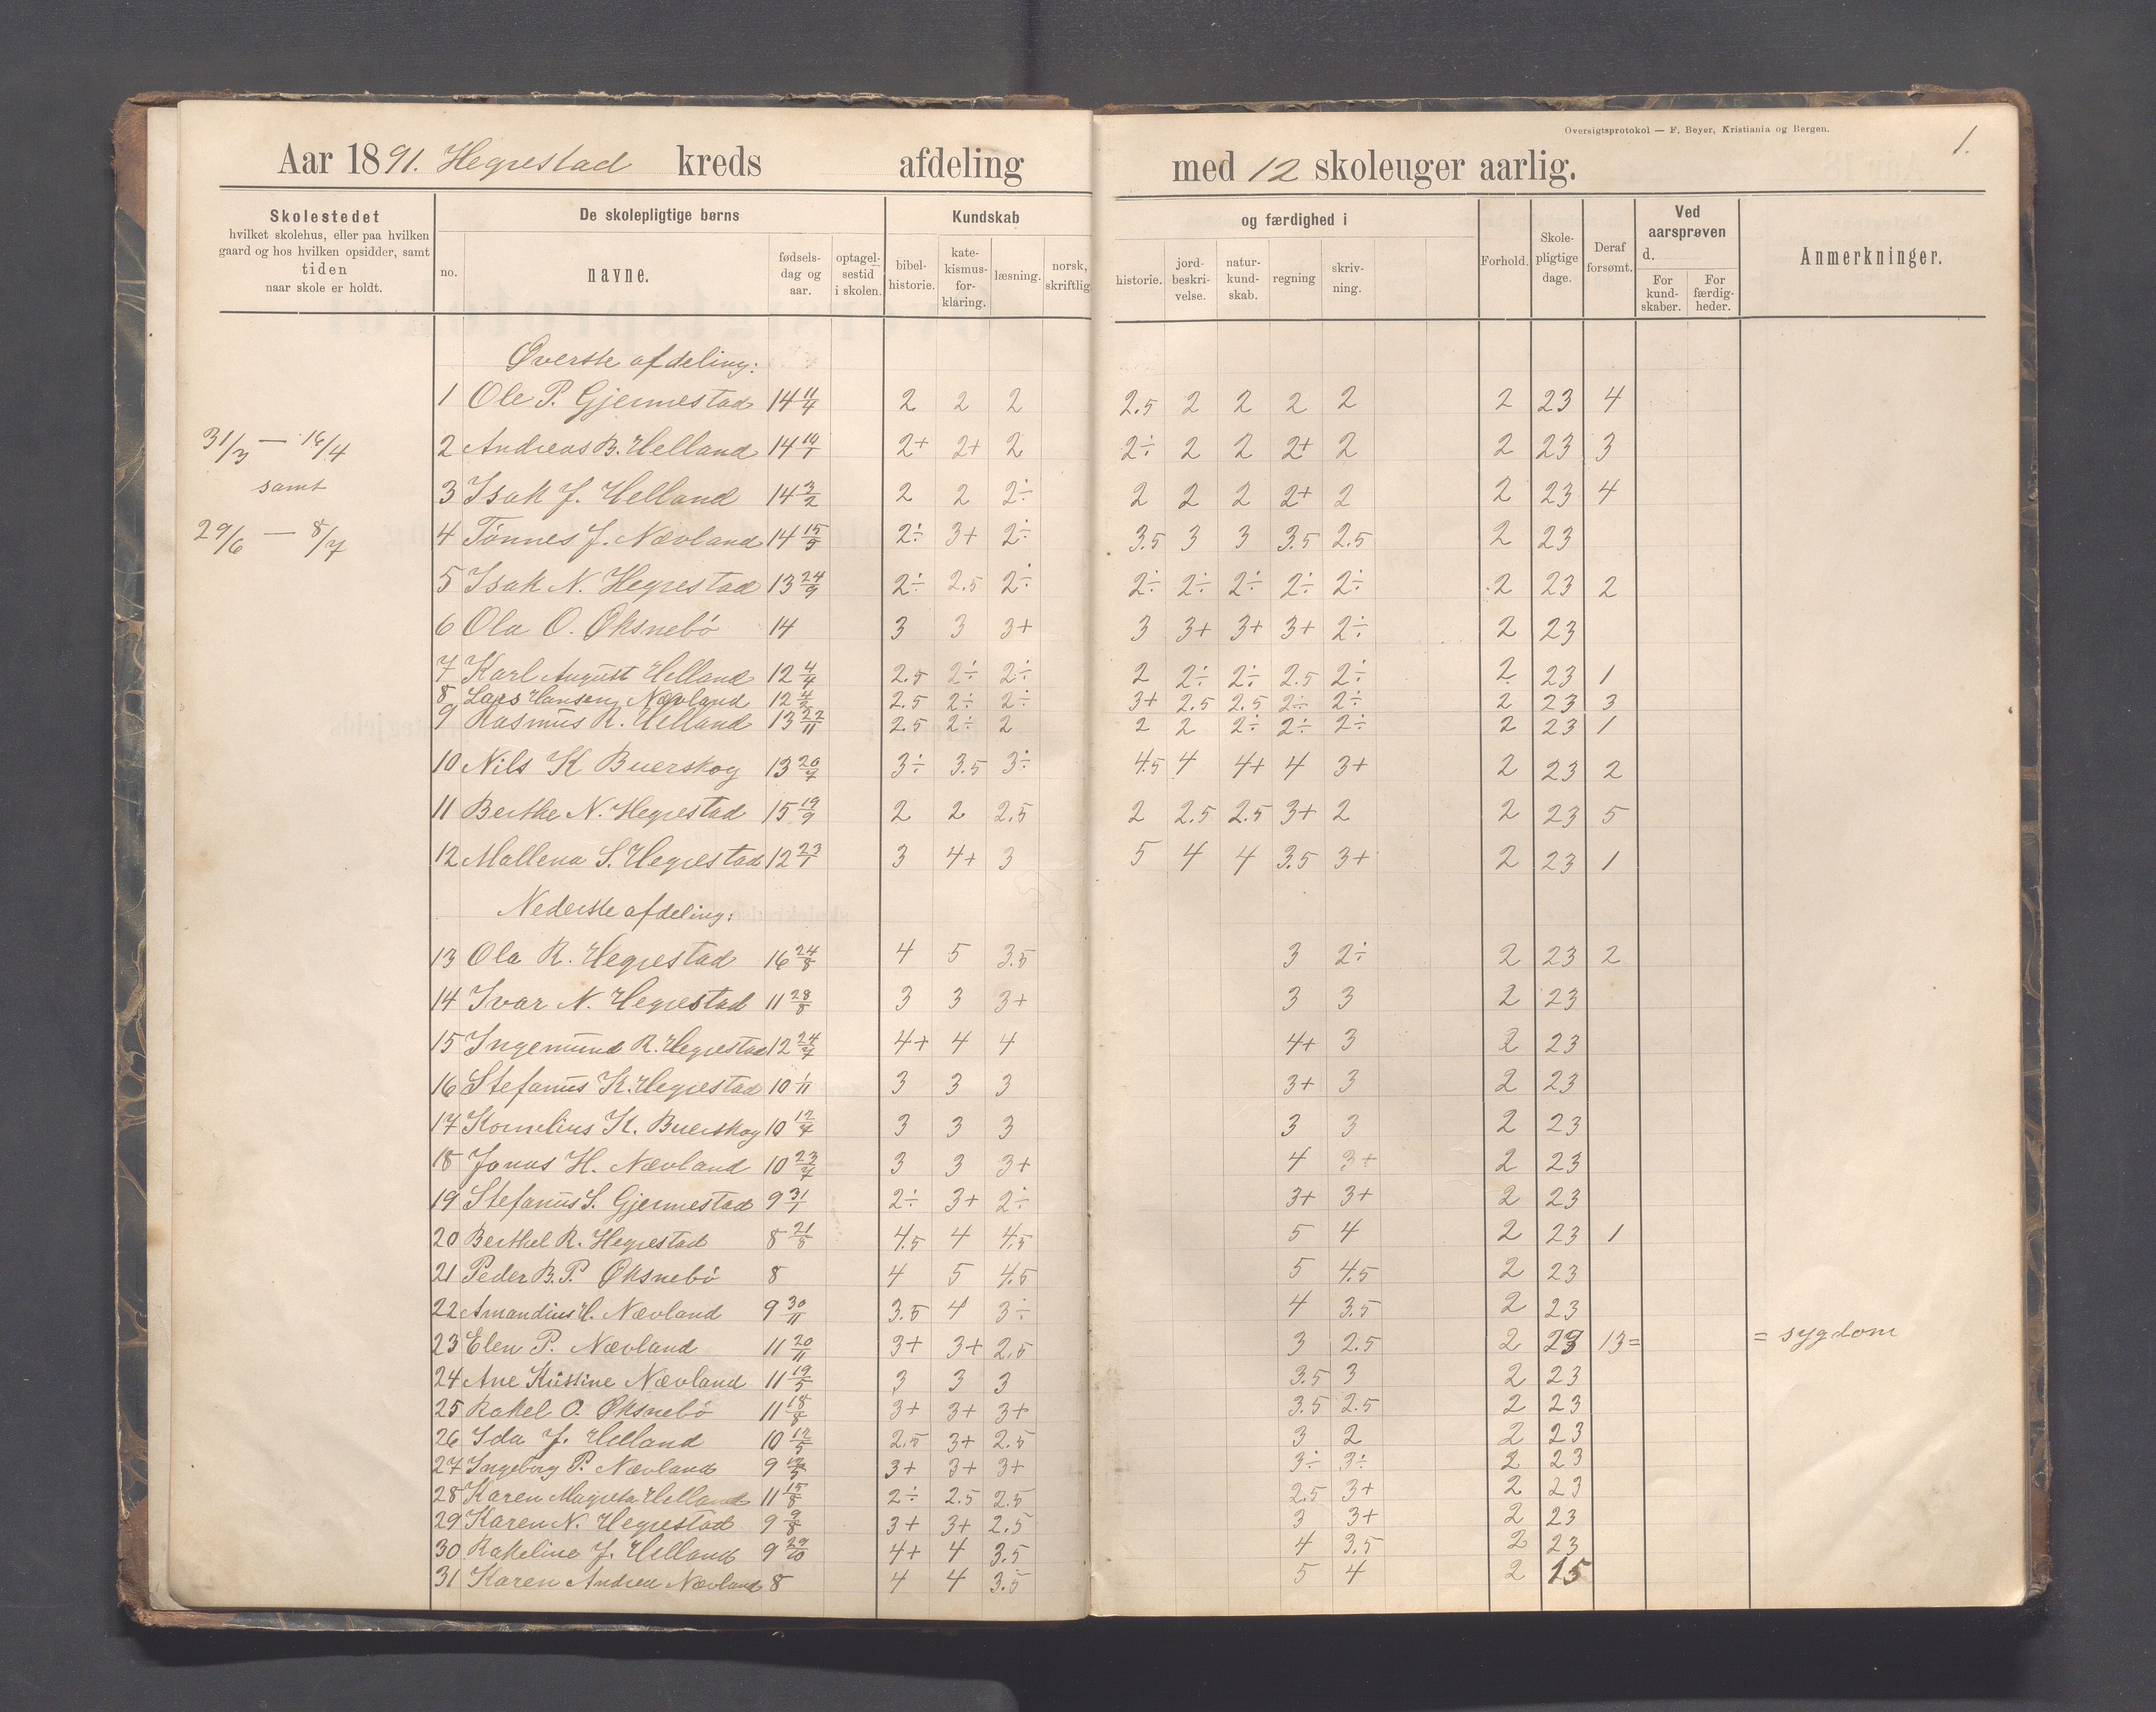 Oversigtsprotokol — F. Beyer, Kristiania og Bergen.
1.
Aar 1891. Hegrestad kreds afdeling med 12 skoleuger aarlig.
Skolestedet hvilket skolehus, eller paa hvilken gaard og hos hvilken opsidder, samt tiden naar skole er holdt.
De skolepligtige børns
no. navne. fødsels-dag og aar. optagel-sestid i skolen.
Kundskab og færdighed i
bibel-historie. kate-kismus-for-klaring. læsning. norsk, skriftlig historie. jord-beskri-velse. natur-kund-skab. regning skriv-ning.
Forhold. Skole-pligtige dage. Deraf forsømt.
Ved aarsprøven d.
For kund-skaber. For færdig-heder.
Anmerkninger.
Øverste afdeling:
1 Ole P. Gjermestad 14 11/4 2 2 2 2.5 2 2 2 2 2 23 4
31/3 — 16/4
2 Andreas B. Helland 14 19/1 2+ 2+ 2 2÷ 2 2 2+ 2 2 23 3
samt
3 Isak J. Helland 14 3/2 2 2 2÷ 2 2 2 2+ 2 2 23 4
29/6 — 8/7
4 Tønnes J. Nævland 14 15/5 2÷ 3+ 2÷ 3.5 3 3 3.5 2.5 2 23
5 Isak N. Hegrestad 13 24/9 2÷ 2.5 2÷ 2÷ 2÷ 2÷ 2÷ 2÷ 2 23 2
6 Ola O. Øksnebö 14 3 3 3+ 3 3+ 3+ 3+ 2÷ 2 23
7 Karl August Helland 12 4/4 2.5 2÷ 2÷ 2 2÷ 2÷ 2.5 2÷ 2 23 1
8 Lars Hansen Nævland 12 4/2 2.5 2÷ 2÷ 3+ 2.5 2.5 2÷ 2÷ 2 23 3
9 Rasmus R. Helland 13 22/11 2.5 2÷ 2 2 2 2÷ 2÷ 2÷ 2 23 1
10 Nils K Buerskog 13 20/7 3÷ 3.5 3÷ 4.5 4 4+ 4 3+ 2 23 2
11 Berthe N. Hegrestad 15 19/9 2 2 2.5 2 2.5 2.5 3+ 2 2 23 5
12 Mallena S. Hegrestad 12 23/1 3 4+ 3 5 4 4 3.5 3+ 2 23 1
Nederste afdeling:
13 Ola R. Hegrestad 16 24/8 4 5 3.5 3 2÷ 2 23 2
14 Ivar N. Hegrestad 11 28/8 3 3 3+ 3 3 2 23
15 Ingemund R. Hegrestad 12 24/7 4+ 4 4 4+ 3 2 23
16 Stefanus K. Hegrestad 10 1/11 3 3 3 3+ 3 2 23
17 Kornelius K. Buerskog 10 12/4 3 3 3 3 3 2 23
18 Jonas H. Nævland 10 23/7 3 3 3+ 4 3+ 2 23
19 Stefanus S. Gjermestad 9 31/1 2÷ 3+ 2÷ 3+ 3+ 2 23
20 Berthel R. Hegrestad 8 21/8 4.5 4 4.5 5 4 2 23 1
21 Peder B. P. Øksnebö 8 4 5 4.5 5 4.5 2 23
22 Amandius H. Nævland 9 30/11 3.5 4 3÷ 4 3.5 2 23
23 Elen P. Nævland 11 20/11 3+ 3+ 2.5 3 2.5 2 23 13= = sygdom
24 Ane Kristine Nævland 11 19/5 3 3 3 3.5 3 2 23
25 Rakel O. Øksnebö 11 18/8 3+ 3+ 3+ 3.5 2.5 2 23
26 Ida J. Helland 10 12/5 2.5 3+ 2.5 3 2 2 23
27 Ingeborg P. Nævland 9 3+ 3+ 3+ 3÷ 3÷ 2 23
28 Karen Magreta Helland 11 15/8 2÷ 2.5 2.5 2.5 3+ 2 23
29 Karen N. Hegrestad 9 9/8 3+ 3+ 2.5 3 3+ 2 23
30 Rakeline J. Helland 9 29/10 4+ 4 3.5 4 3.5 2 23
31 Karen Andrea Nævland 8 4 4 3.5 5 4 2 15